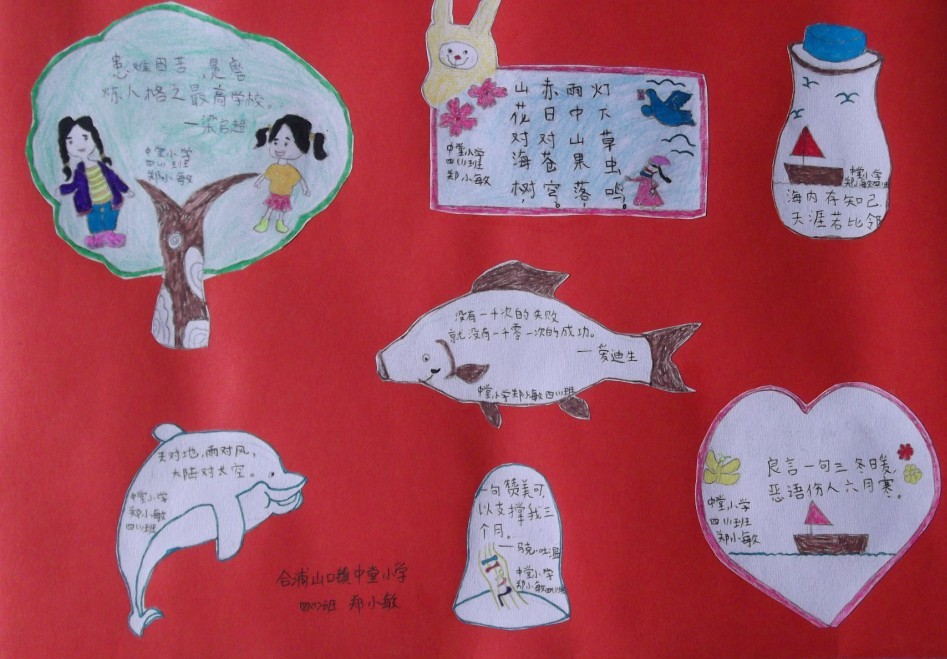 患难困苦,是
炼人格之最高学校。
—梁启超
中堂小学
四(1)班
郑小敏
山花对海树,
赤日对苍穹。
雨中山果落,
灯下草虫鸣。
中堂小学
四(1)班
郑小敏
中堂小学
郑小敏
海内存知己
天涯若比邻
没有一千次的失败
就没有一千零一次的成功。
—爱迪生
中堂小学郑小敏四(1)班
天对地,雨对风,
大陆对太空。
中堂小学
郑小敏
四(1)班
一句赞美可
以支撑我三
个月。
—马克·吐温
中堂小学
郑小敏四(1)班
良言一句三冬暖
恶语伤人六月寒。
中堂小学
四(1)班
郑小敏
合浦山口镇中堂小学
四(1)班 郑小敏